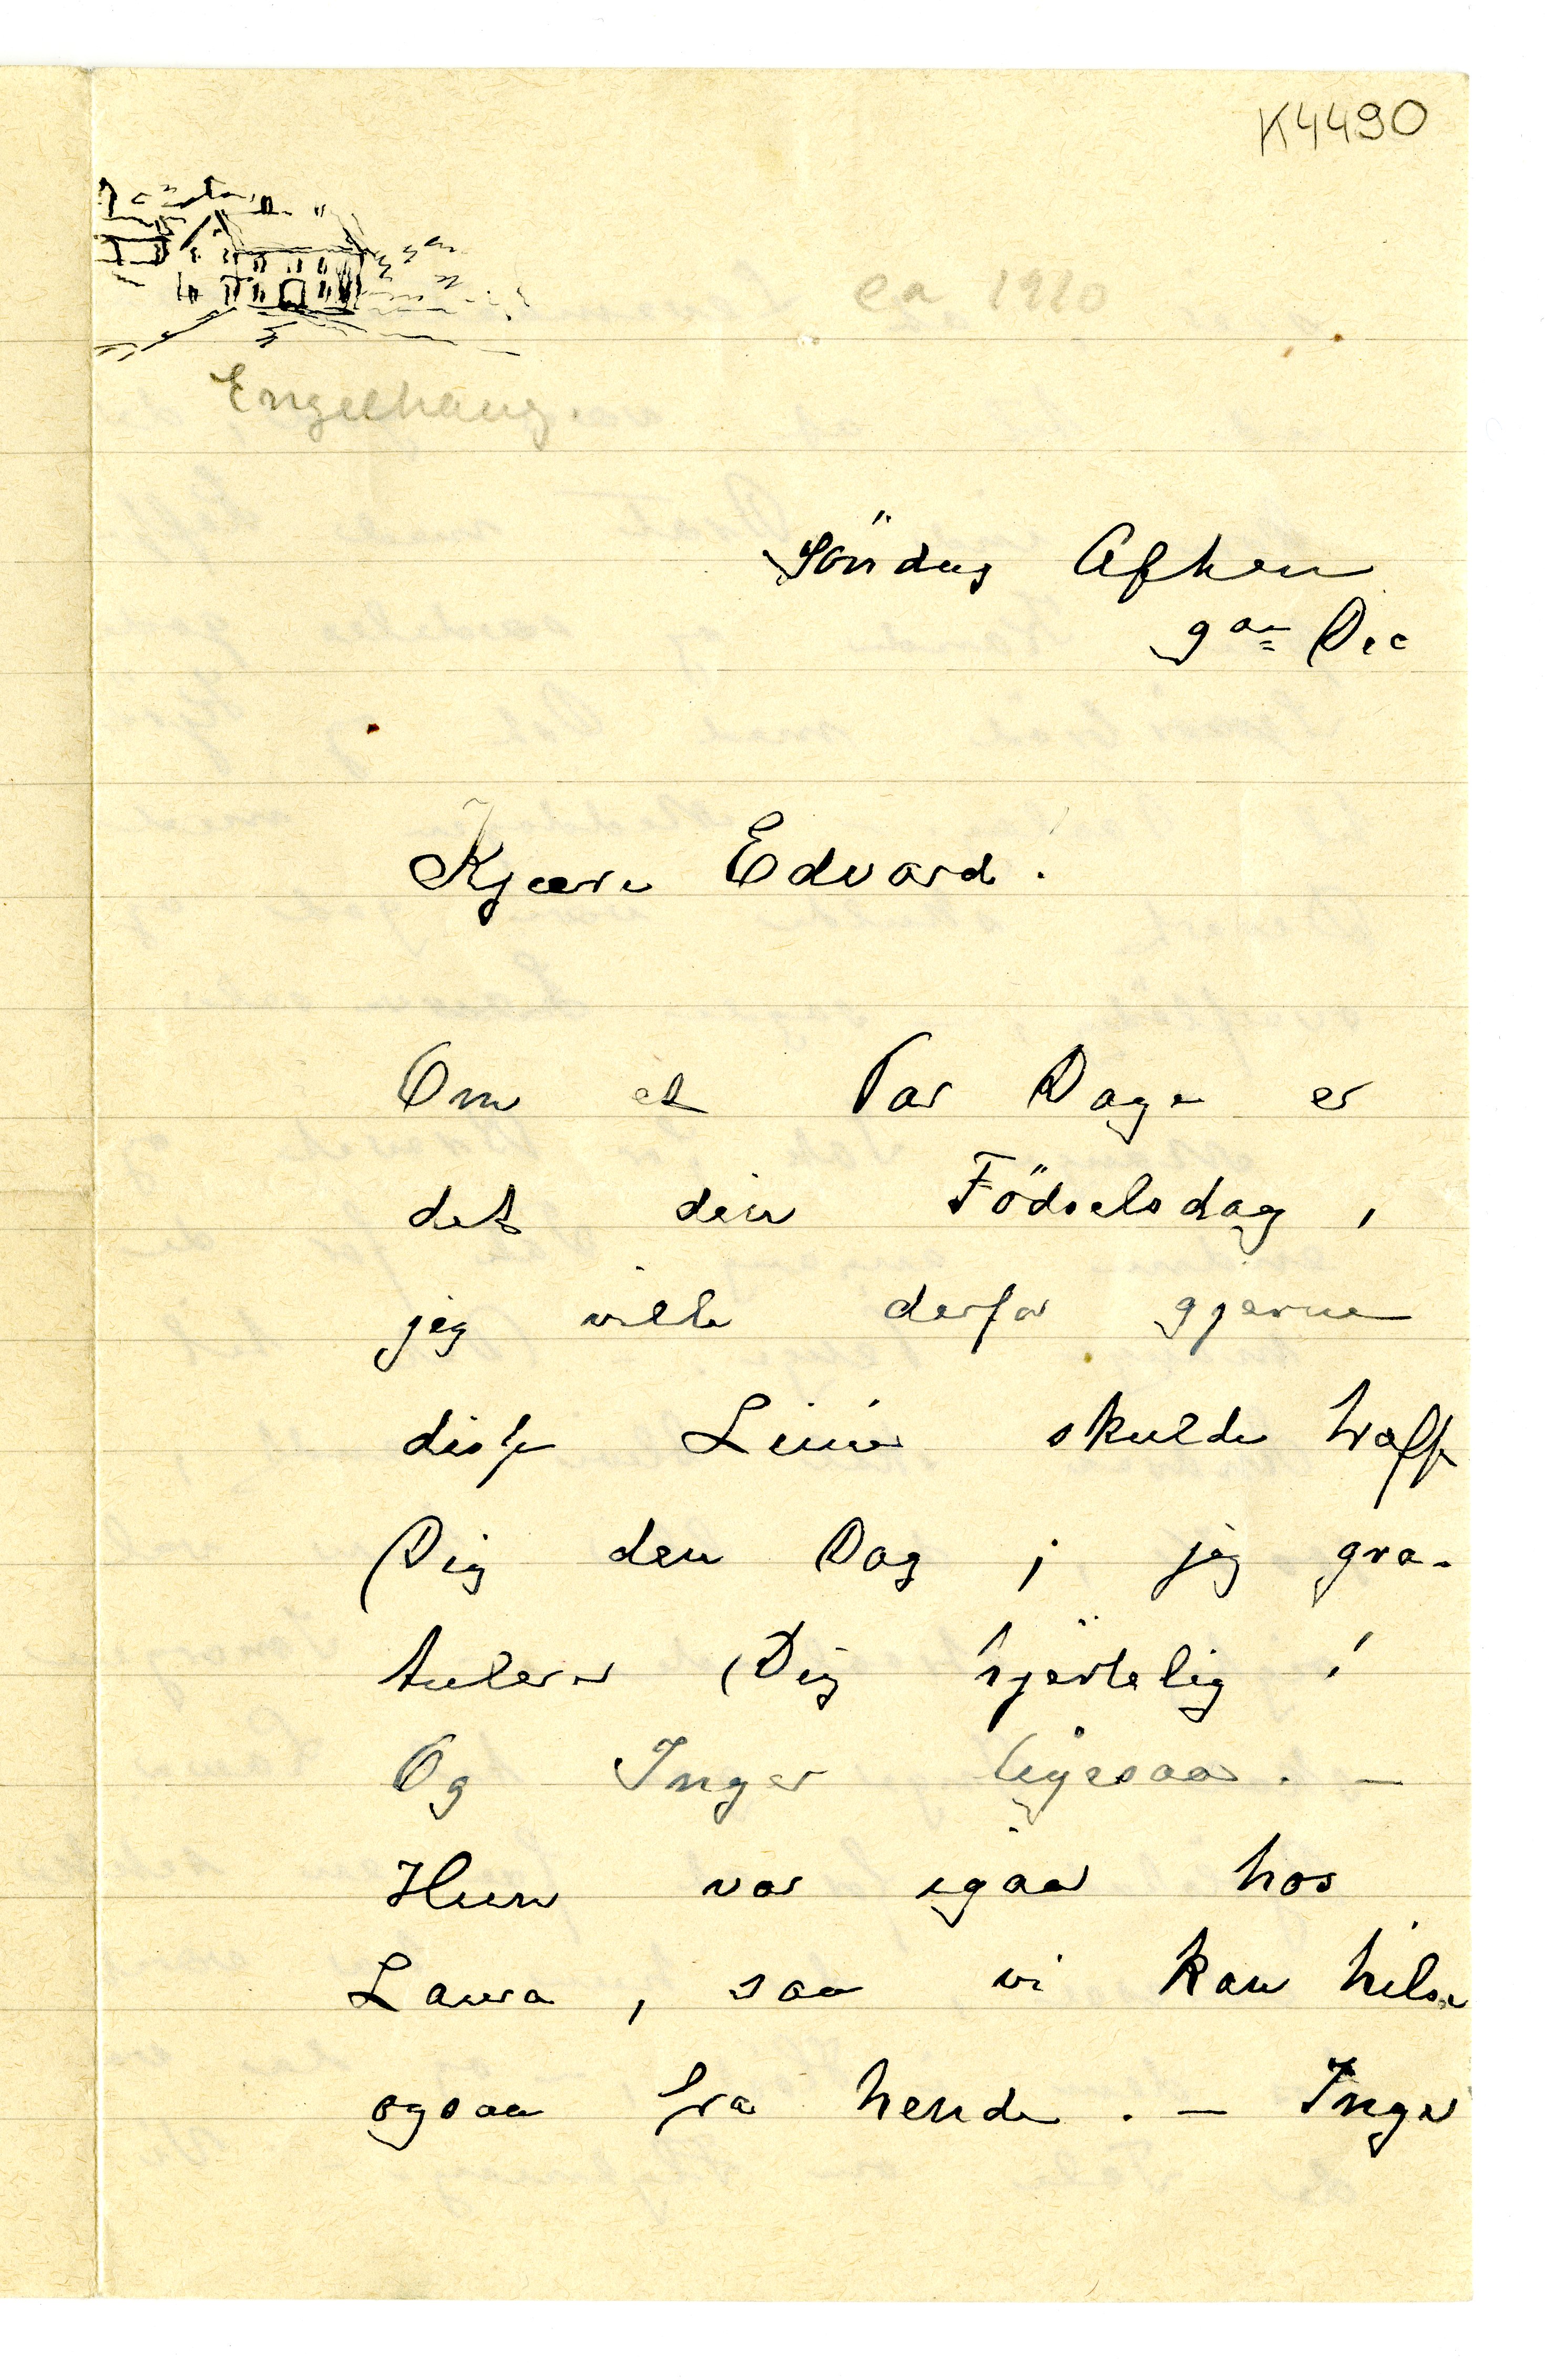 K4490
ca 1910
Engelhaug.
Söndag Aften
9de Dec
Kjære Edvard!
Om et Par Dage er
det din Födselsdag,
jeg vilde derfor gjerne
disse Linier skulde træffe
Dig den Dag; jeg gra-
tulerer Dig hjertelig!
Og Inger ligesaa. –
Hun var igaar hos
Laura, saa vi kan hilse
ogsaa fra hende. – Inger